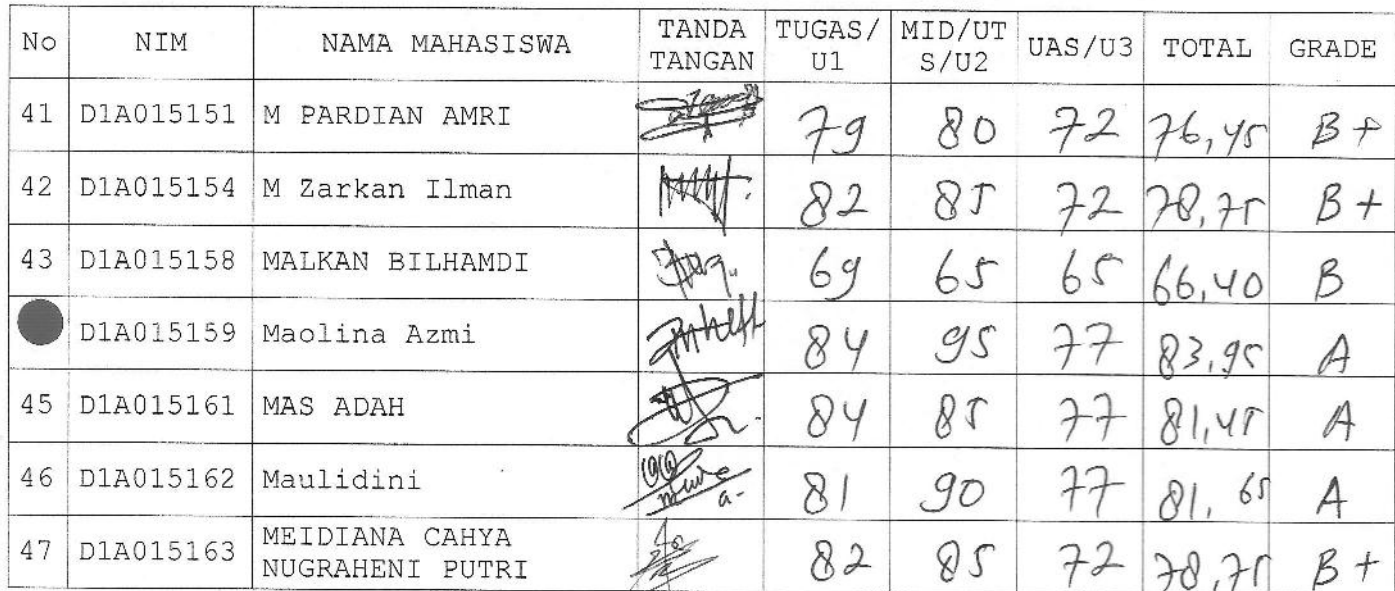 No NIM NAMA MAHASISWA TANDA TANGAN TUGAS/U1 MID/UTS/U2 UAS/U3 TOTAL GRADE
41 D1A015151 M PARDIAN AMRI 79 80 72 76,45 B+
42 D1A015154 M Zarkan Ilman 82 85 72 78,75 B+
43 D1A015158 MALKAN BILHAMDI 69 65 65 66,40 B
D1A015159 Maolina Azmi 84 95 77 83,95 A
45 D1A015161 MAS ADAH 84 85 77 81,45 A
46 D1A015162 Maulidini 81 90 77 81,65 A
47 D1A015163 MEIDIANA CAHYA NUGRAHENI PUTRI 82 85 72 78,75 B+